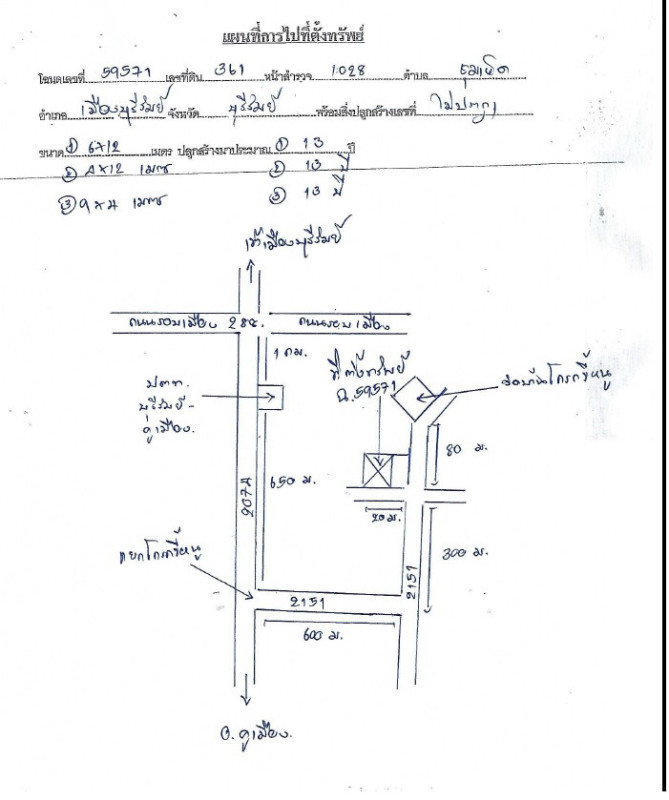 แผนที่การไปที่ตั้งทรัพย์
โฉนดเลขที่ 59571 เลขที่ดิน 361 หน้าสำรวจ 1028 ตำบล ชุมเห็ด
อำเภอ เมืองบุรีรัมย์ จังหวัด บุรีรัมย์ พร้อมสิ่งปลูกสร้างเลขที่ ไม่ปรากฏ
ขนาด ① 6×12 เมตร ปลูกสร้างมาประมาณ ① 13 ปี
② 4×12 เมตร ② 13 ปี
③ 9×4 เมตร ③ 13 ปี
เข้าเมืองบุรีรัมย์
ถนนรอบเมือง 288. ถนนรอบเมือง
1 กม.
ปตท.
บุรีรัมย์-
คูเมือง.
ที่ตั้งทรัพย์
ฉ.59571
วัดบ้านโคกขี้หนู
80 ม.
2074
650 ม.
20 ม.
แยกโคกขี้หนู
300 ม.
2151
2151
600 ม.
อ.คูเมือง.